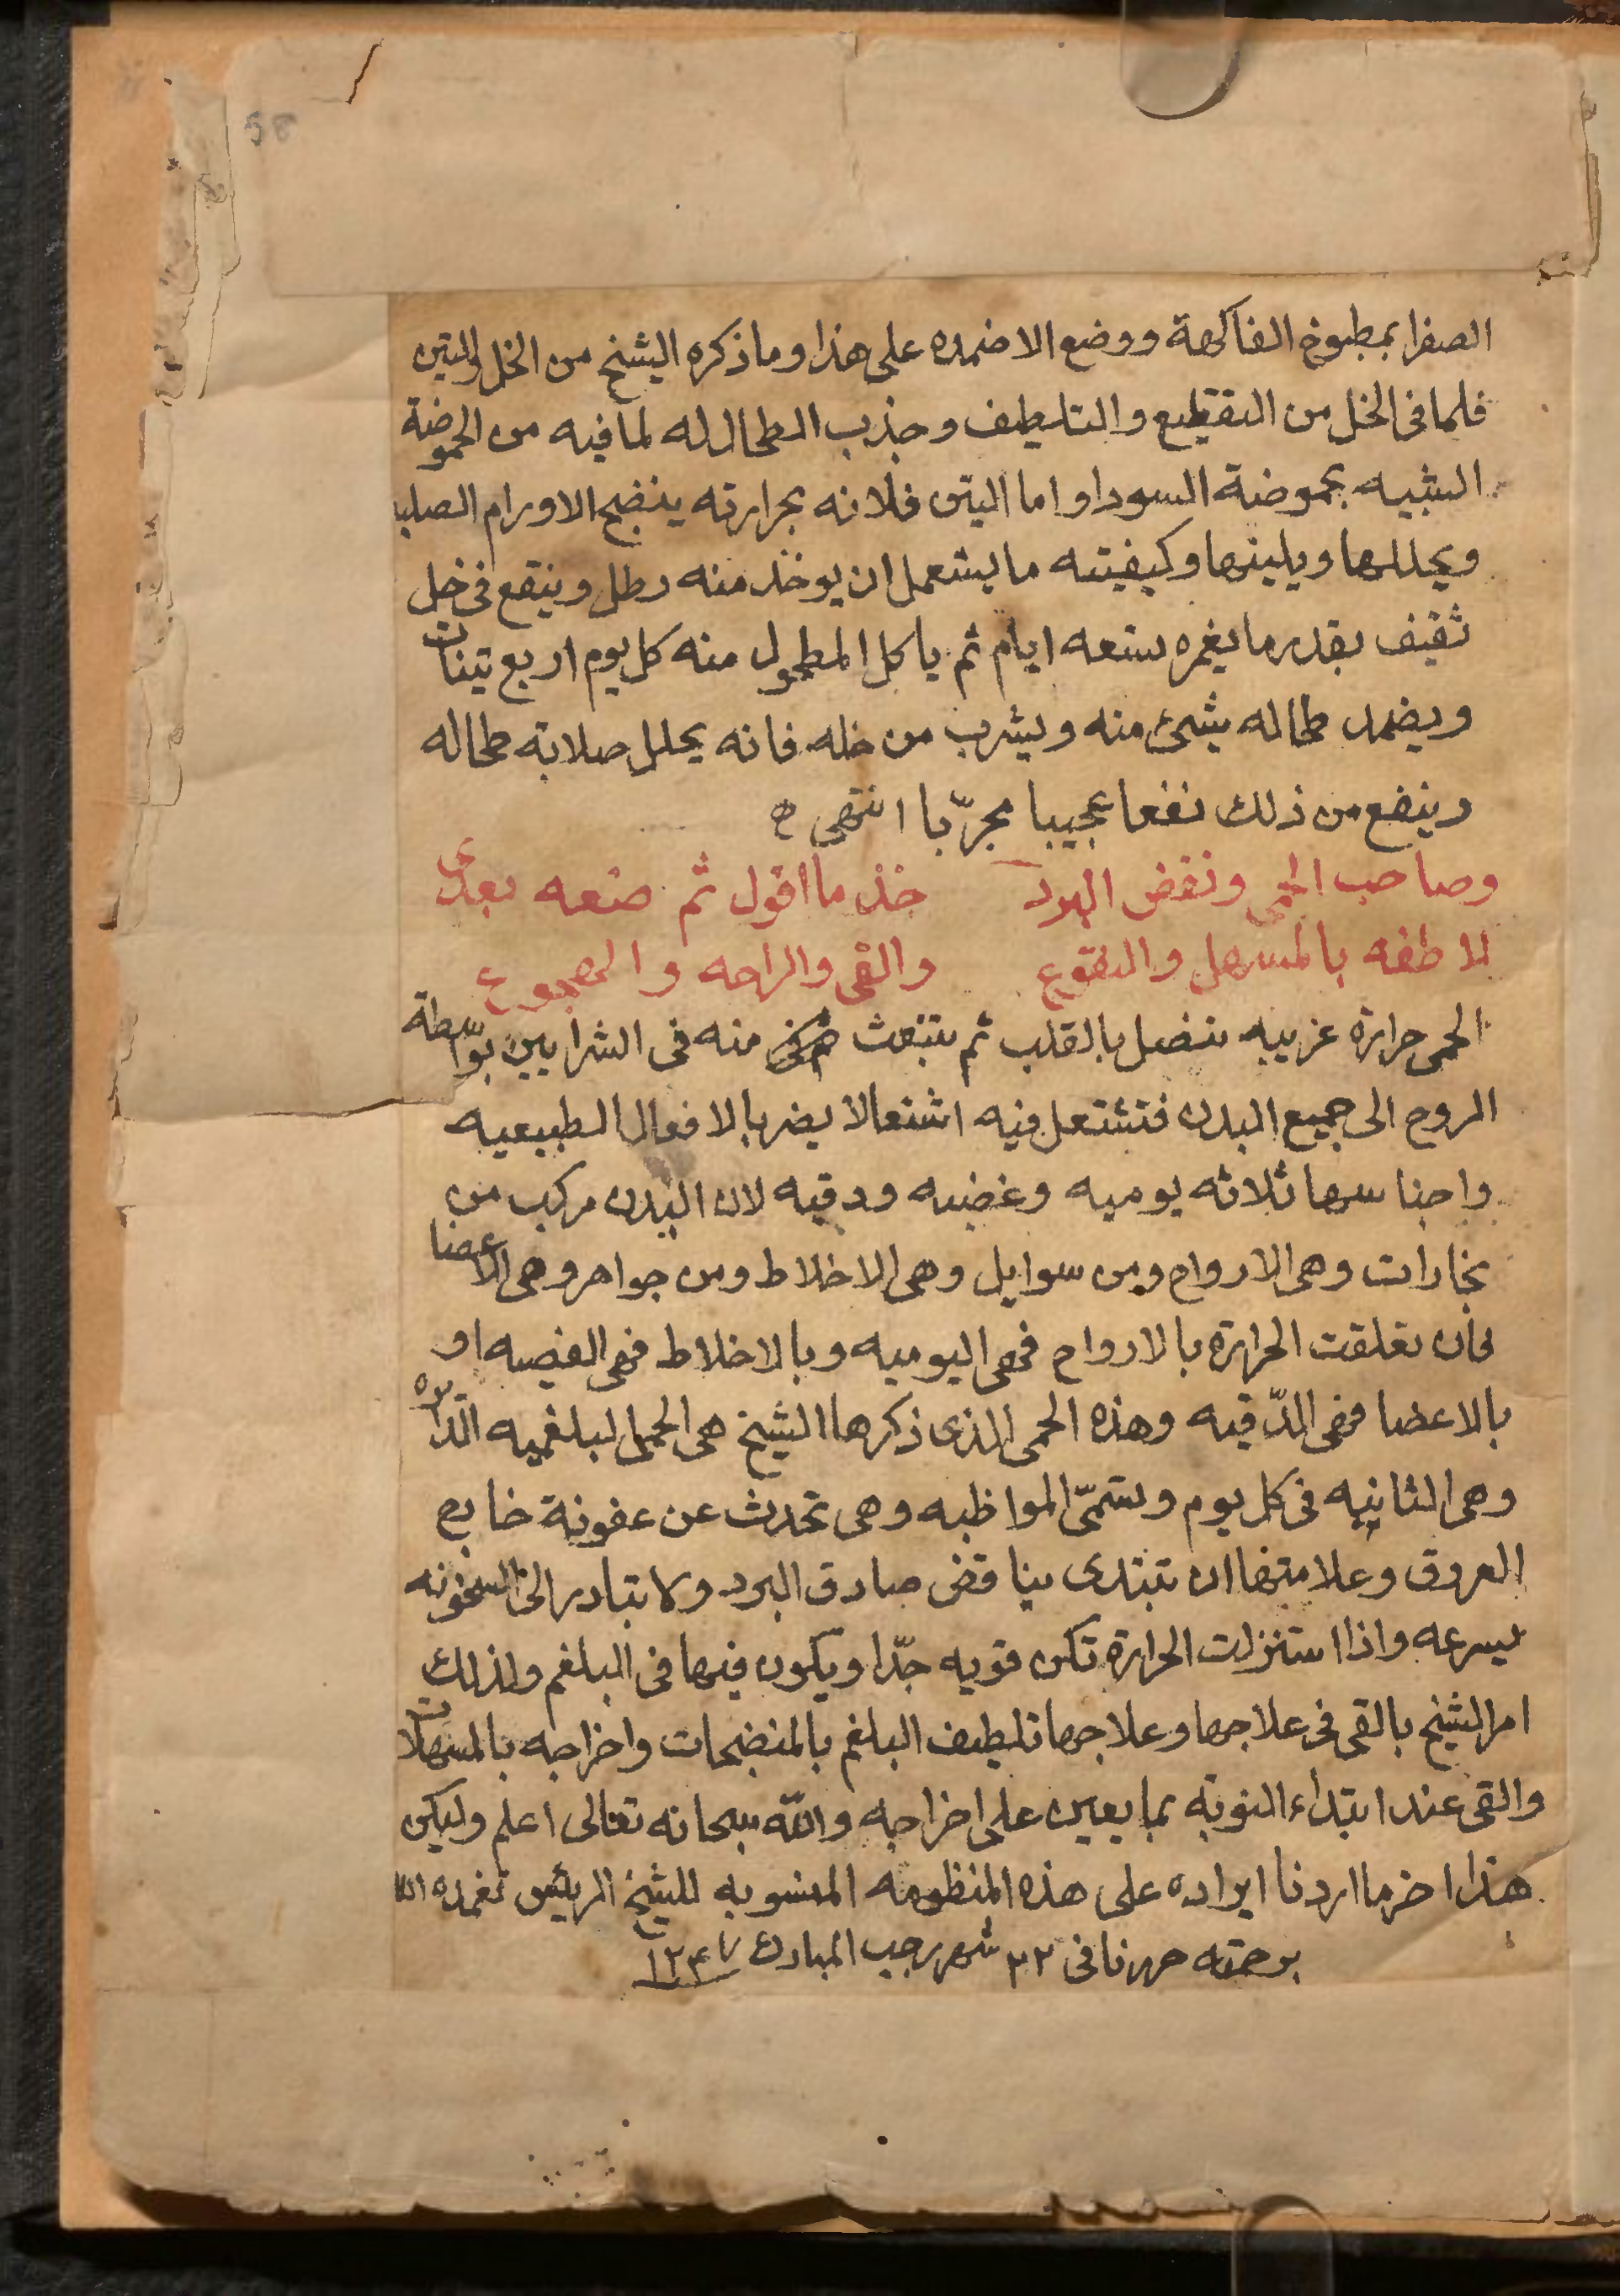 58
الصفرا بمطبوخ الفاكهة ووضع الاضمده على هذا وما ذكره الشيخ من الخل والتين
فلما فى الخل من التقطيع والتلطيف وجذب الطحال له لما فيه من الحموضة
الشبيه بحموضة السودا واما التين فلانه بحرارته ينضج الاورام الصلبه
ويحللها ويلينها وكيفيته ما يستعمل ان يوخذ منه رطل وينقع فى خل
ثقيف بقدر ما يغمره ستعه ايام ثم ياكل المطحول منه كل يوم اربع تينات
ويضمد طحاله بشىء منه ويشرب من خله فانه يحلل صلابة طحاله
وينفع من ذلك نفعا عجيبا مجرّبا انتهى ه
وصاحب الحمى ونفض البرد خذ ما اقول ثم صنعه بعدى
لاطفه بالمسهل والنقوع والقى والراحه والهجوع
الحمى حرارة غريبه تتصل بالقلب ثم تنبعث منه فى الشرايين بواسطة
الروح الى جميع البدن فتشتعل فيه اشتعالا يضر بالافعال الطبيعيه
واجناسها ثلاثه يوميه وعفنيه ودقيه لان البدن مركب من
بخارات وهى الارواح ومن سوايل وهى الاخلاط ومن جواهر وهى الاعضا
فان تعلقت الحرارة بالارواح فهى اليوميه وبالاخلاط فهى العفنيه او
بالاعضا فهى الدّقيه وهذه الحمى الذى ذكرها الشيخ هى الحمى البلغميه الدّايره
وهى النايبه فى كل يوم وتسمّى المواظبه وهى تحدث عن عفونة خارج
العروق وعلامتها ان تبتدى بناقض صادق البرد ولا تبادر الى السخونه
بسرعه واذا استنزلت الحرارة تكن قويه جدّا ويكون فيها فى البلغم ولذلك
امر الشيخ بالقى فى علاجها وعلاجها تلطيف البلغم بالمنضجات واخراجه بالمسهلات
والقى عند ابتداء النوبه بما يعين على اخراجه والله سبحانه تعالى اعلم وليكن
هذا اخر ما اردنا ايراده على هذه المنظومه المنسوبه للشيخ الرئيس تغمده الله
برحمته حررنا فى ٢٢ شهر رجب المبارك ١٢٤٧